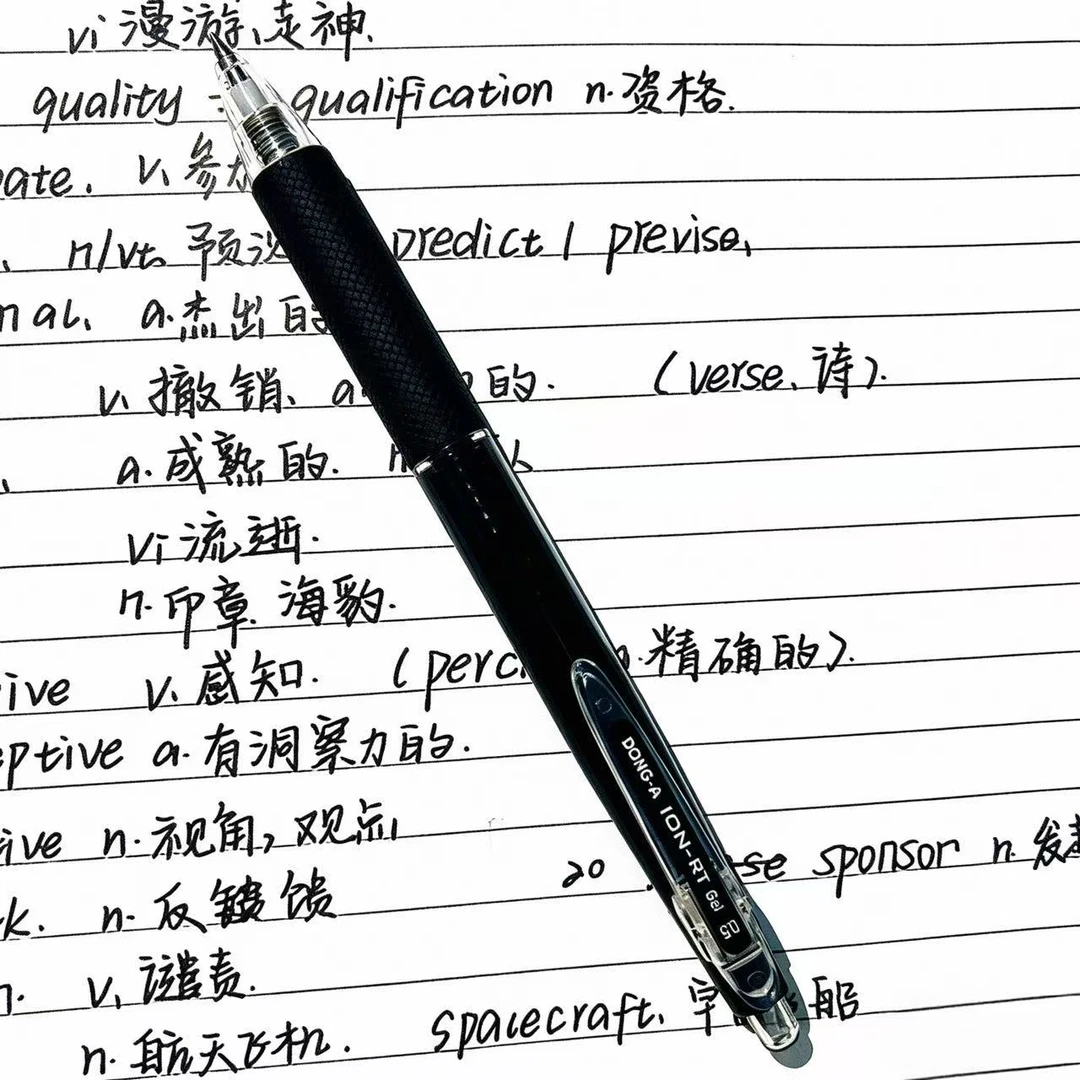 vi 漫游、走神.
quality qualification n. 资格.
ate. v. 参加
n/vt. 预 predict / previse.
nal. a. 杰出的
v. 撤销. a 的. (verse. 诗).
a. 成熟的.
vi 流逝.
n. 印章. 海豹.
ive v. 感知. (perc 精确的).
eptive a. 有洞察力的.
ive n. 视角, 观点
k. n. 反馈
20 se sponsor n. 发起
v. 谴责.
n. 航天飞机. spacecraft. 船
DONG-A ION-RT Gel 05